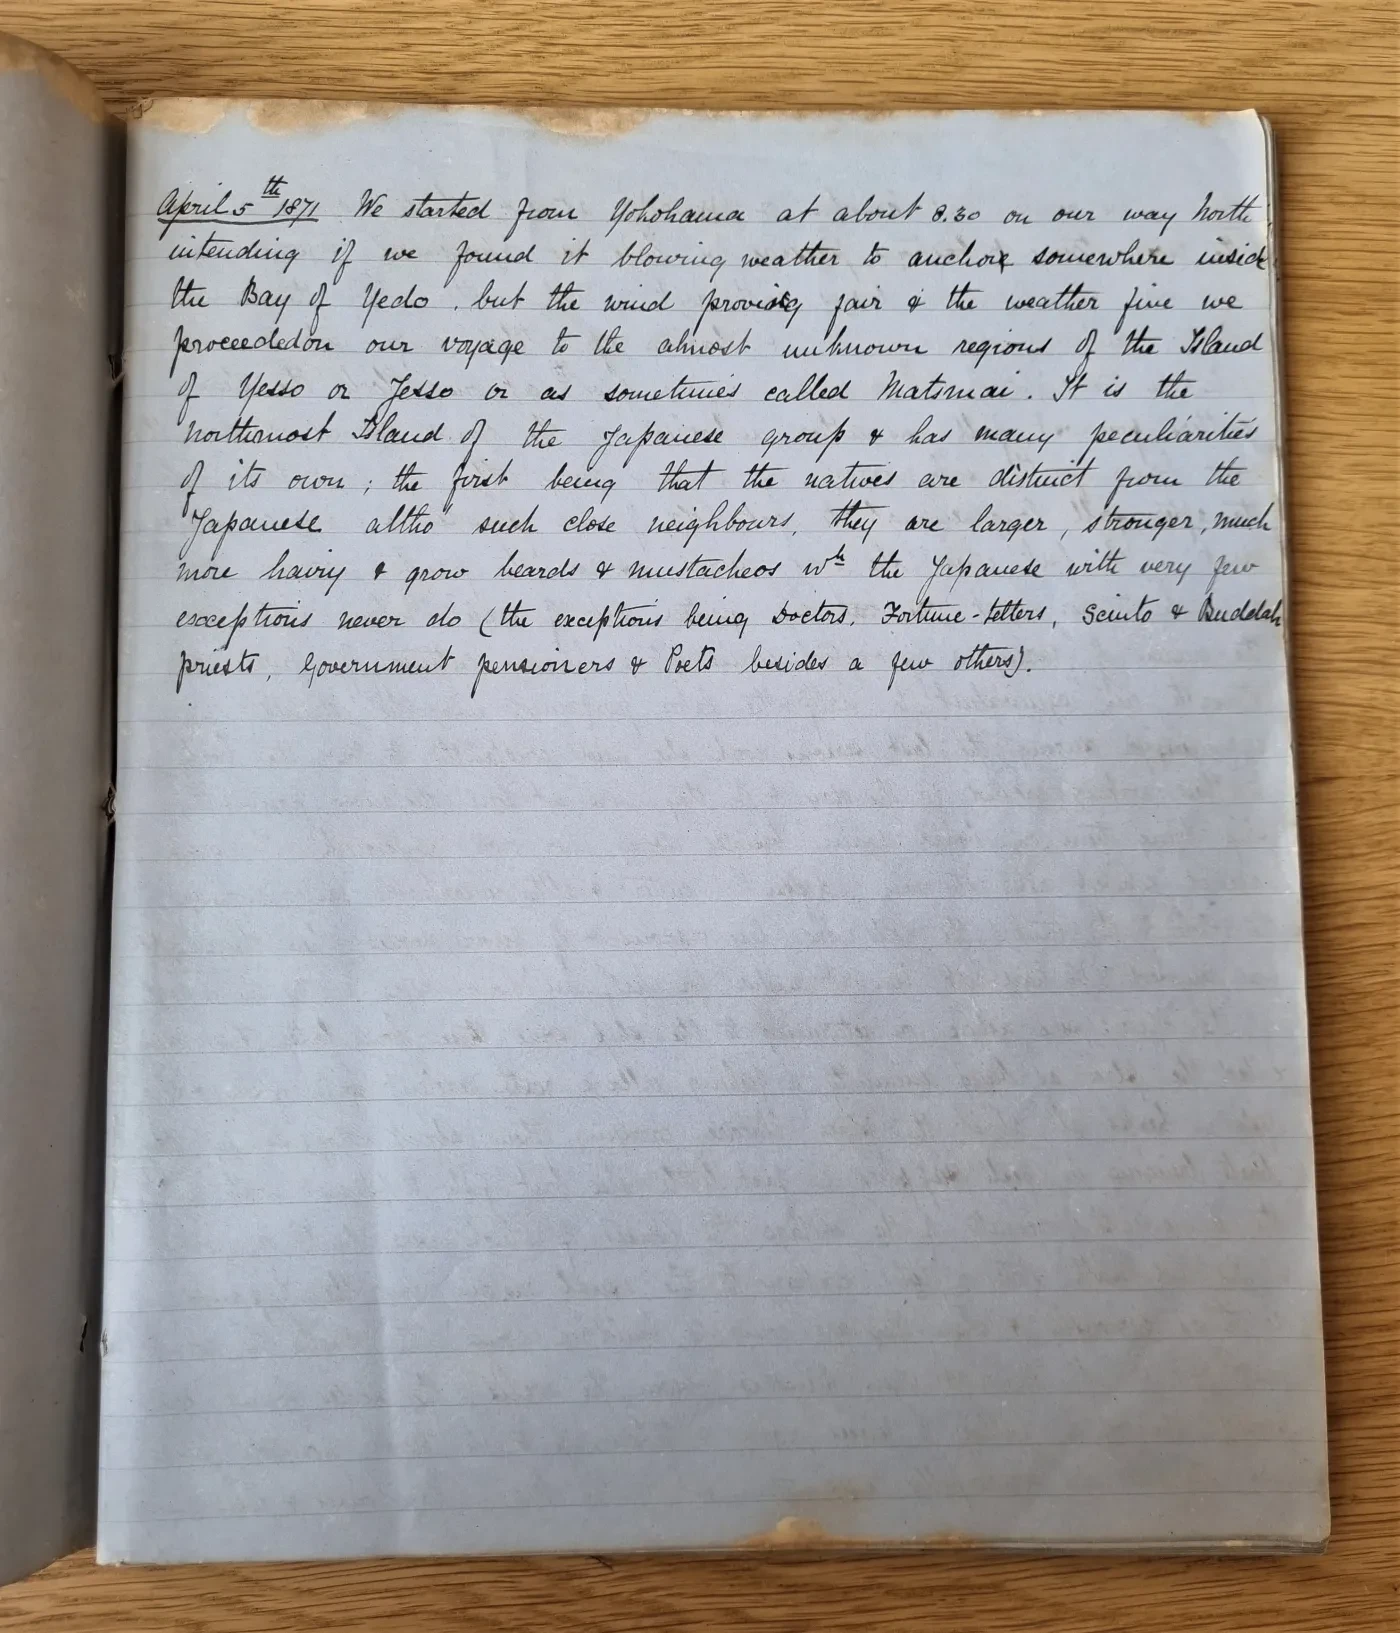 April 5th 1871 We started from Yokohama at about 8.30 on our way North
intending if we found it blowing weather to anchor somewhere inside
the Bay of Yedo. but the wind proving fair & the weather fine we
proceeded on our voyage to the almost unknown regions of the Island
of Yesso or Jesso or as sometimes called Matsmai. It is the
Northmost Island of the Japanese group & has many peculiarities
of its own; the first being that the natives are distinct from the
Japanese altho' such close neighbours, they are larger, stronger, much
more hairy & grow beards & mustacheos wh the Japanese with very few
exceptions never do (the exceptions being Doctors, Fortune-tellers, Sinto & Buddah
priests, Government pensioners & Poets besides a few others).